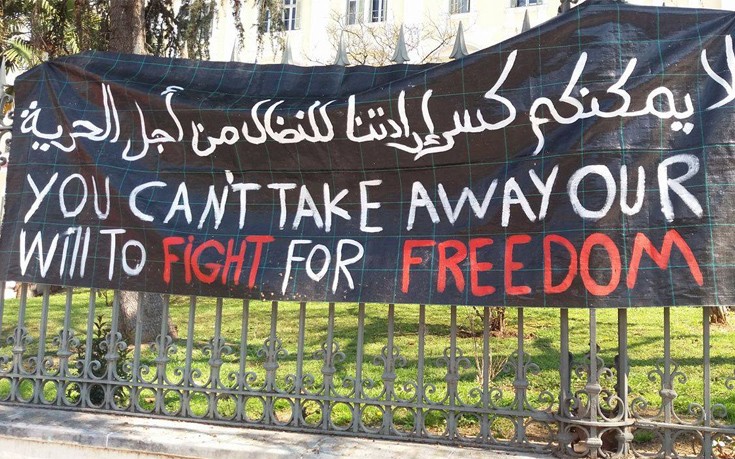 لا يمكنكم كسر إرادتنا للنضال من أجل الحرية
YOU CAN'T TAKE AWAY OUR
WIll TO FIGHT FOR FREEDOM